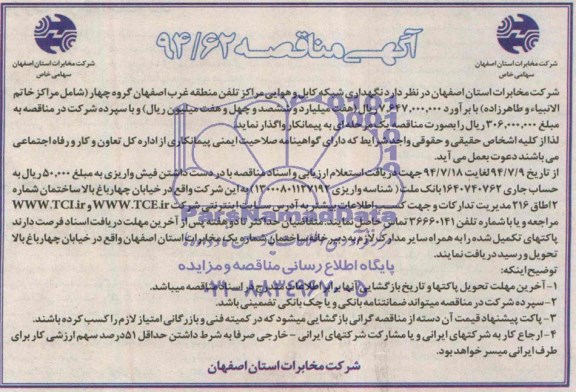 آگهی مناقصه ۹۴/۶۲
شرکت مخابرات استان اصفهان
سهامی خاص
شرکت مخابرات استان اصفهان
سهامی خاص
شرکت مخابرات استان اصفهان در نظر دارد نگهداری شبکه کابل و هوایی مراکز تلفن منطقه غرب اصفهان گروه چهار (شامل مراکز خاتم
الانبیاء و طاهرزاده) با برآورد ۷,۶۴۷,۰۰۰,۰۰۰ ریال (هفت میلیارد و ششصد و چهل و هفت میلیون ریال) و با سپرده شرکت در مناقصه به
مبلغ ۳۰۶,۰۰۰,۰۰۰ ریال را بصورت مناقصه یک مرحله ای به پیمانکار واگذار نماید.
لذا از کلیه اشخاص حقیقی و حقوقی واجد شرایط که دارای گواهینامه صلاحیت ایمنی پیمانکاری از اداره کل تعاون و کار و رفاه اجتماعی
می باشند دعوت بعمل می آید.
از تاریخ ۹۴/۷/۹ لغایت ۹۴/۷/۱۸ جهت دریافت استعلام ارزیابی و اسناد مناقصه با در دست داشتن فیش واریزی به مبلغ ۵۰,۰۰۰ ریال به
حساب جاری ۱۶۴۰۷۴۰۷۶۲ بانک ملت ( شناسه واریزی ۱۳۰۰۰۸۰۱۱۲۷۱۹۲) به این شرکت واقع در خیابان چهارباغ بالا ساختمان شماره
۲ اطاق ۲۱۶ مدیریت تدارکات و جهت کسب اطلاعات بیشتر به آدرس سایت اینترنتی شرکت WWW.TCE.ir و WWW.TCI.ir
مراجعه و یا با شماره تلفن ۳۶۶۶۰۱۴۱ تماس حاصل نمایند. متقاضیان حداکثر تا دو هفته پس از آخرین مهلت دریافت اسناد فرصت دارند
پاکتهای تکمیل شده را به همراه سایر مدارک لازم به دبیرخانه ساختمان شماره یک مخابرات استان اصفهان واقع در خیابان چهارباغ بالا
تحویل و رسید دریافت نمایند.
توضیح اینکه:
۱- آخرین مهلت تحویل پاکتها و تاریخ بازگشایی آنها برابر اطلاعات مندرج در اسناد مناقصه میباشد.
۲- سپرده شرکت در مناقصه میتواند ضمانتنامه بانکی و یا چک بانکی تضمینی باشد.
۳- پاکت پیشنهاد قیمت آن دسته از مناقصه گرانی بازگشایی میشود که در کمیته فنی و بازرگانی امتیاز لازم را کسب کرده باشند.
۴- ارجاع کار به شرکتهای ایرانی و یا مشارکت شرکتهای ایرانی - خارجی صرفا به شرط داشتن حداقل ۵۱ درصد سهم ارزشی کار برای
طرف ایرانی میسر خواهد بود.
شرکت مخابرات استان اصفهان
ParsNamadData
پایگاه اطلاع رسانی مناقصه و مزایده